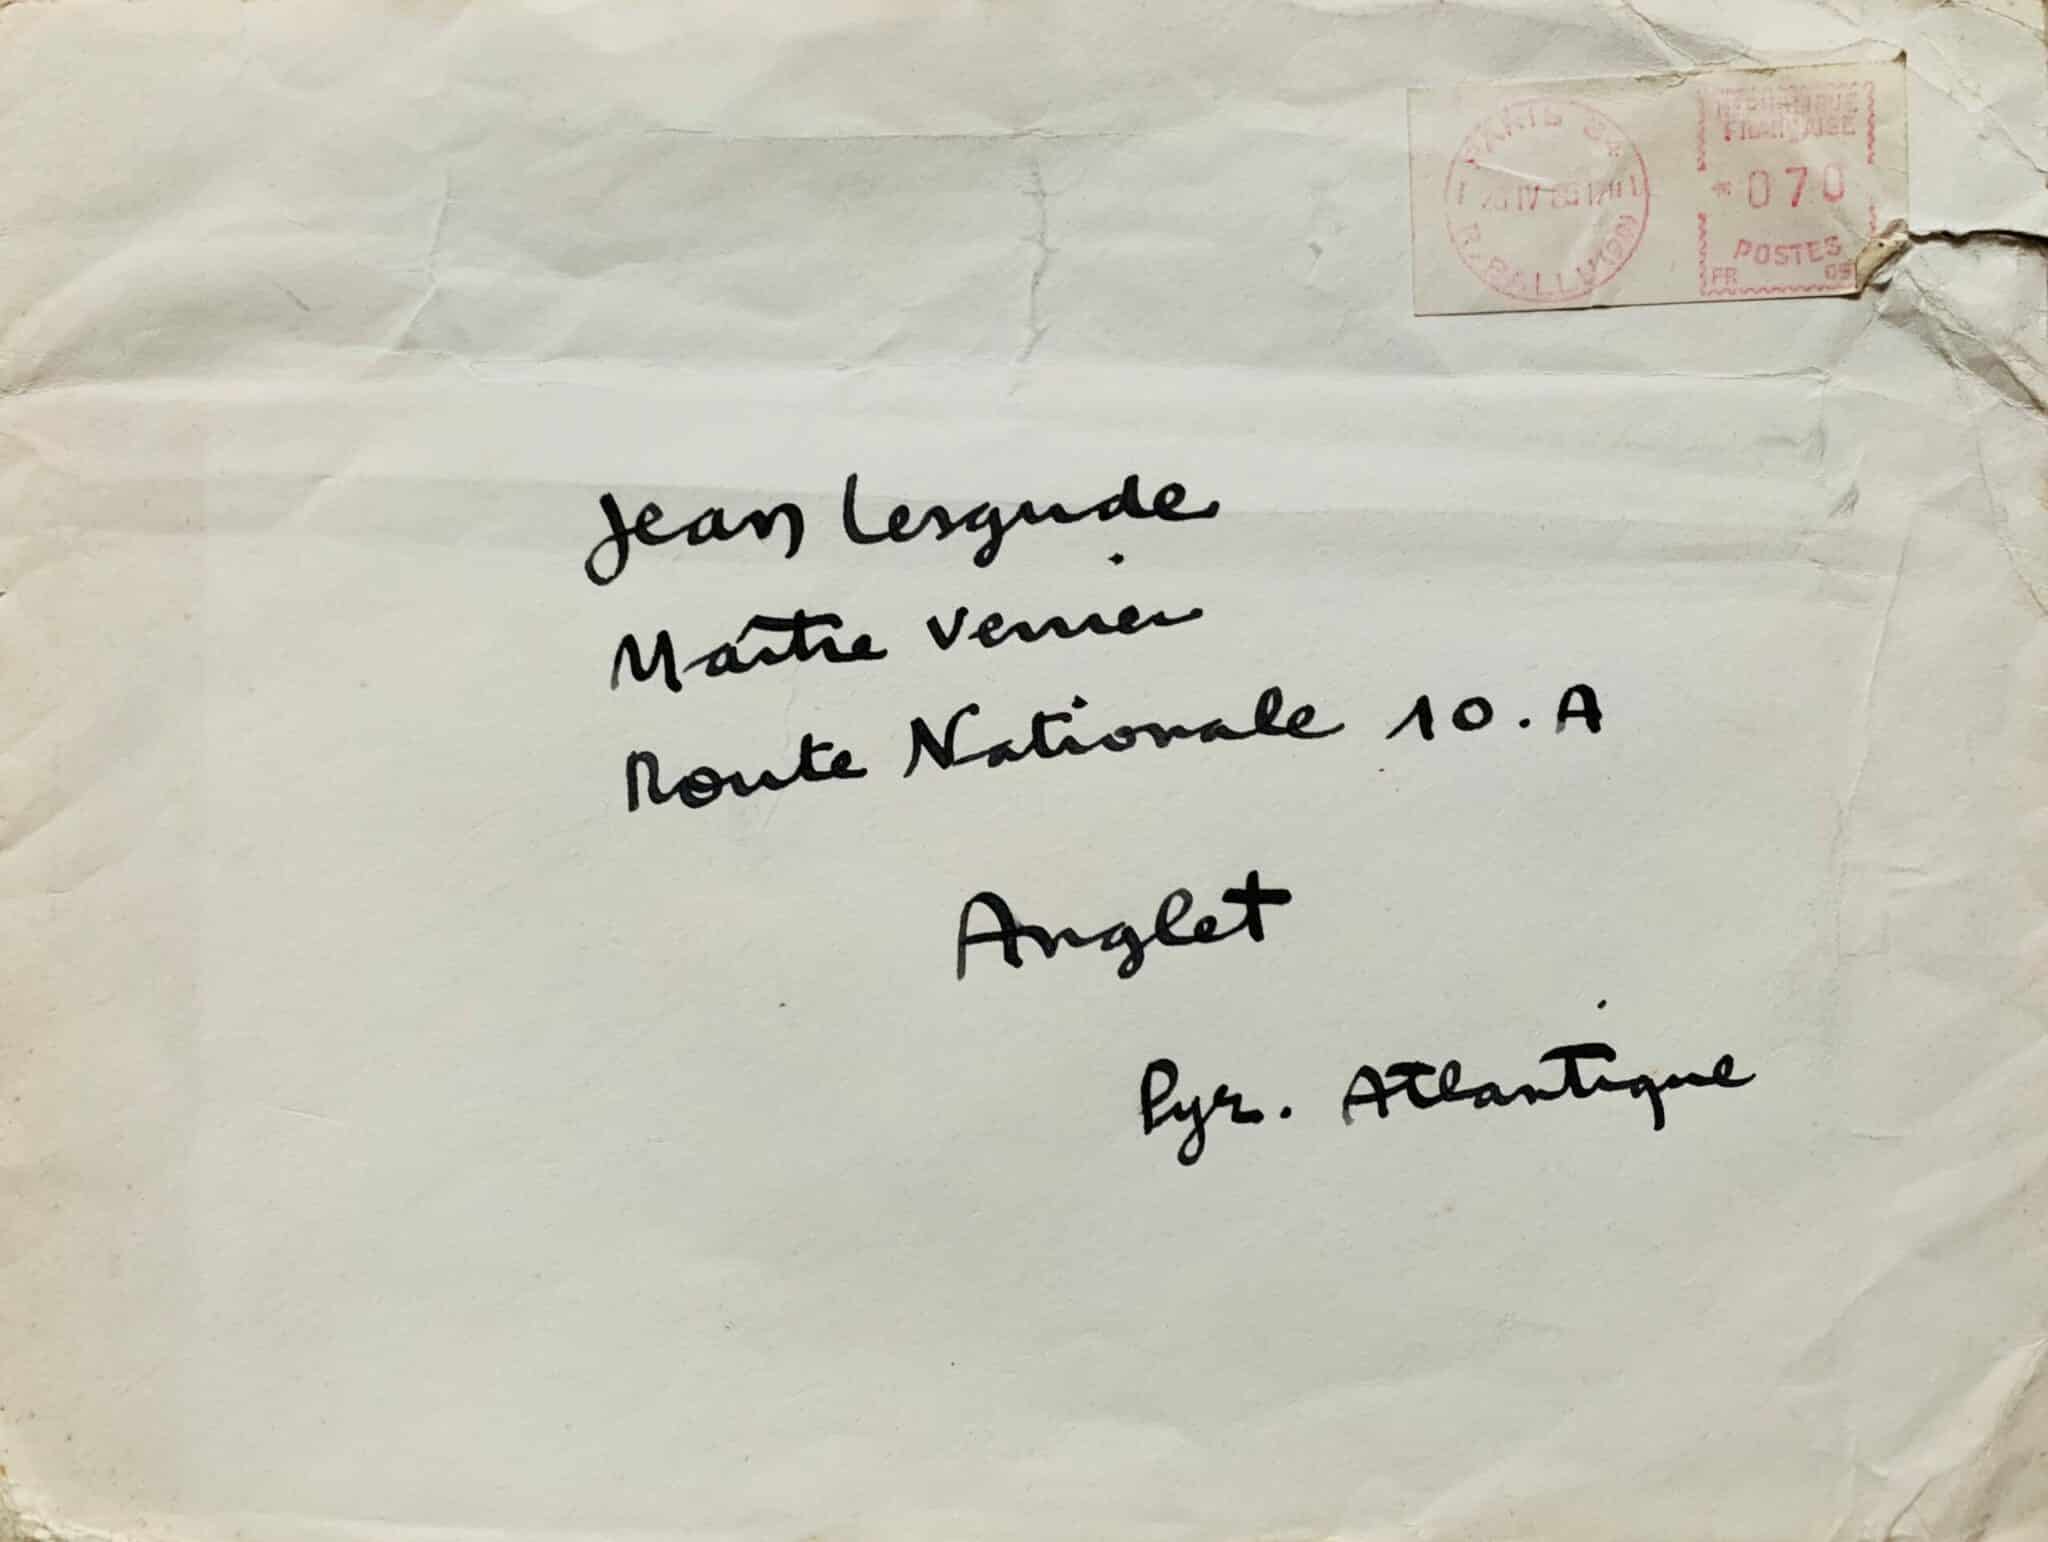 PARIS
R. BALLU (9e)
REPUBLIQUE
FRANÇAISE
070
POSTES
PR 09
Jean Lesgude
Maître Verrier
Route Nationale 10.A
Anglet
Pyr. Atlantique